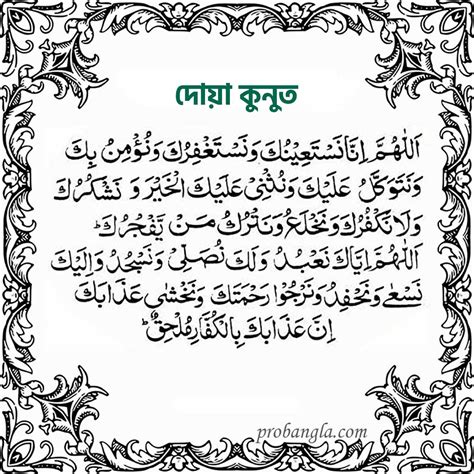 দোয়া কুনুত
اَللّٰهُمَّ اِنَّا نَسْتَعِيْنُكَ وَنَسْتَغْفِرُكَ وَنُؤْمِنُ بِكَ
وَنَتَوَكَّلُ عَلَيْكَ وَنُثْنِيْ عَلَيْكَ الْخَيْرَ وَ نَشْكُرُكَ
وَلَا نَكْفُرُكَ وَنَخْلَعُ وَنَتْرُكُ مَنْ يَّفْجُرُكَ ؕ
اَللّٰهُمَّ اِيَّاكَ نَعْبُدُ وَلَكَ نُصَلِّيْ وَنَسْجُدُ وَاِلَيْكَ
نَسْعٰى وَنَحْفِدُ وَنَرْجُوْا رَحْمَتَكَ وَنَخْشٰى عَذَابَكَ
اِنَّ عَذَابَكَ بِالْكُفَّارِ مُلْحِقٌ ؕ
probangla.com